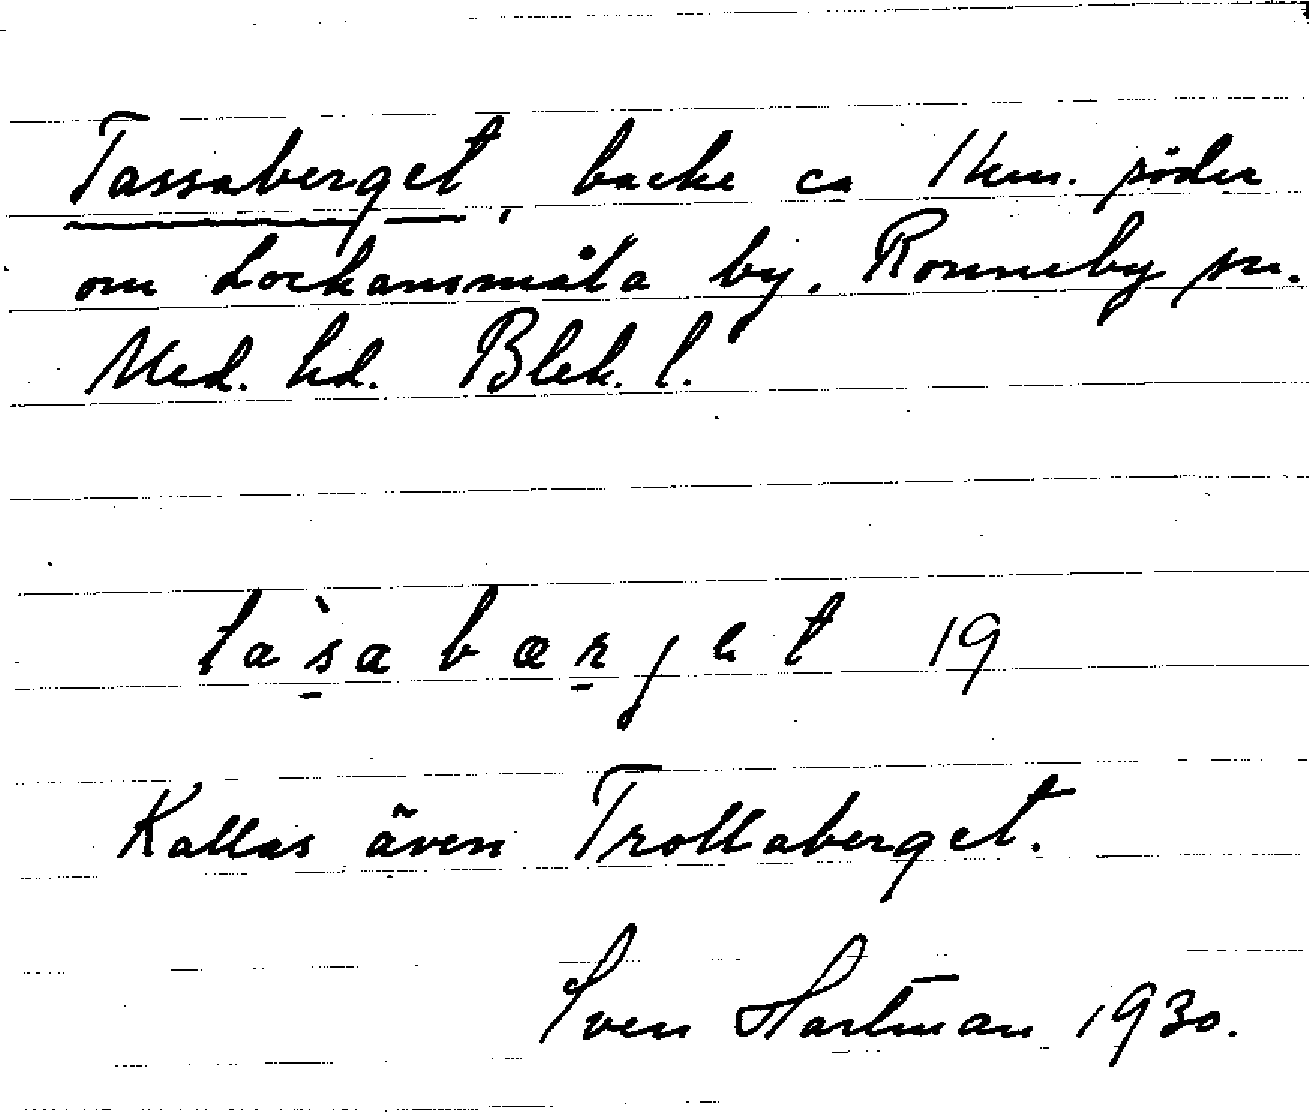 Tassaberget, backe ca 1 km. söder
om Lockansmåla by. Ronneby sn.
Med. hd. Blek. l.
tas̀a bærjet 19
Kallas även Trollaberget.
Sven Hartman 1930.